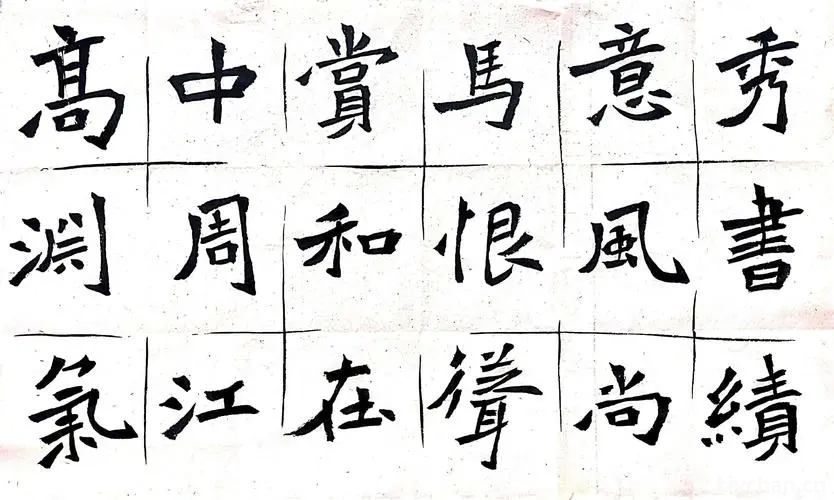 秀書績
意風尚
馬恨聳
賞和在
中周江
髙淵氣